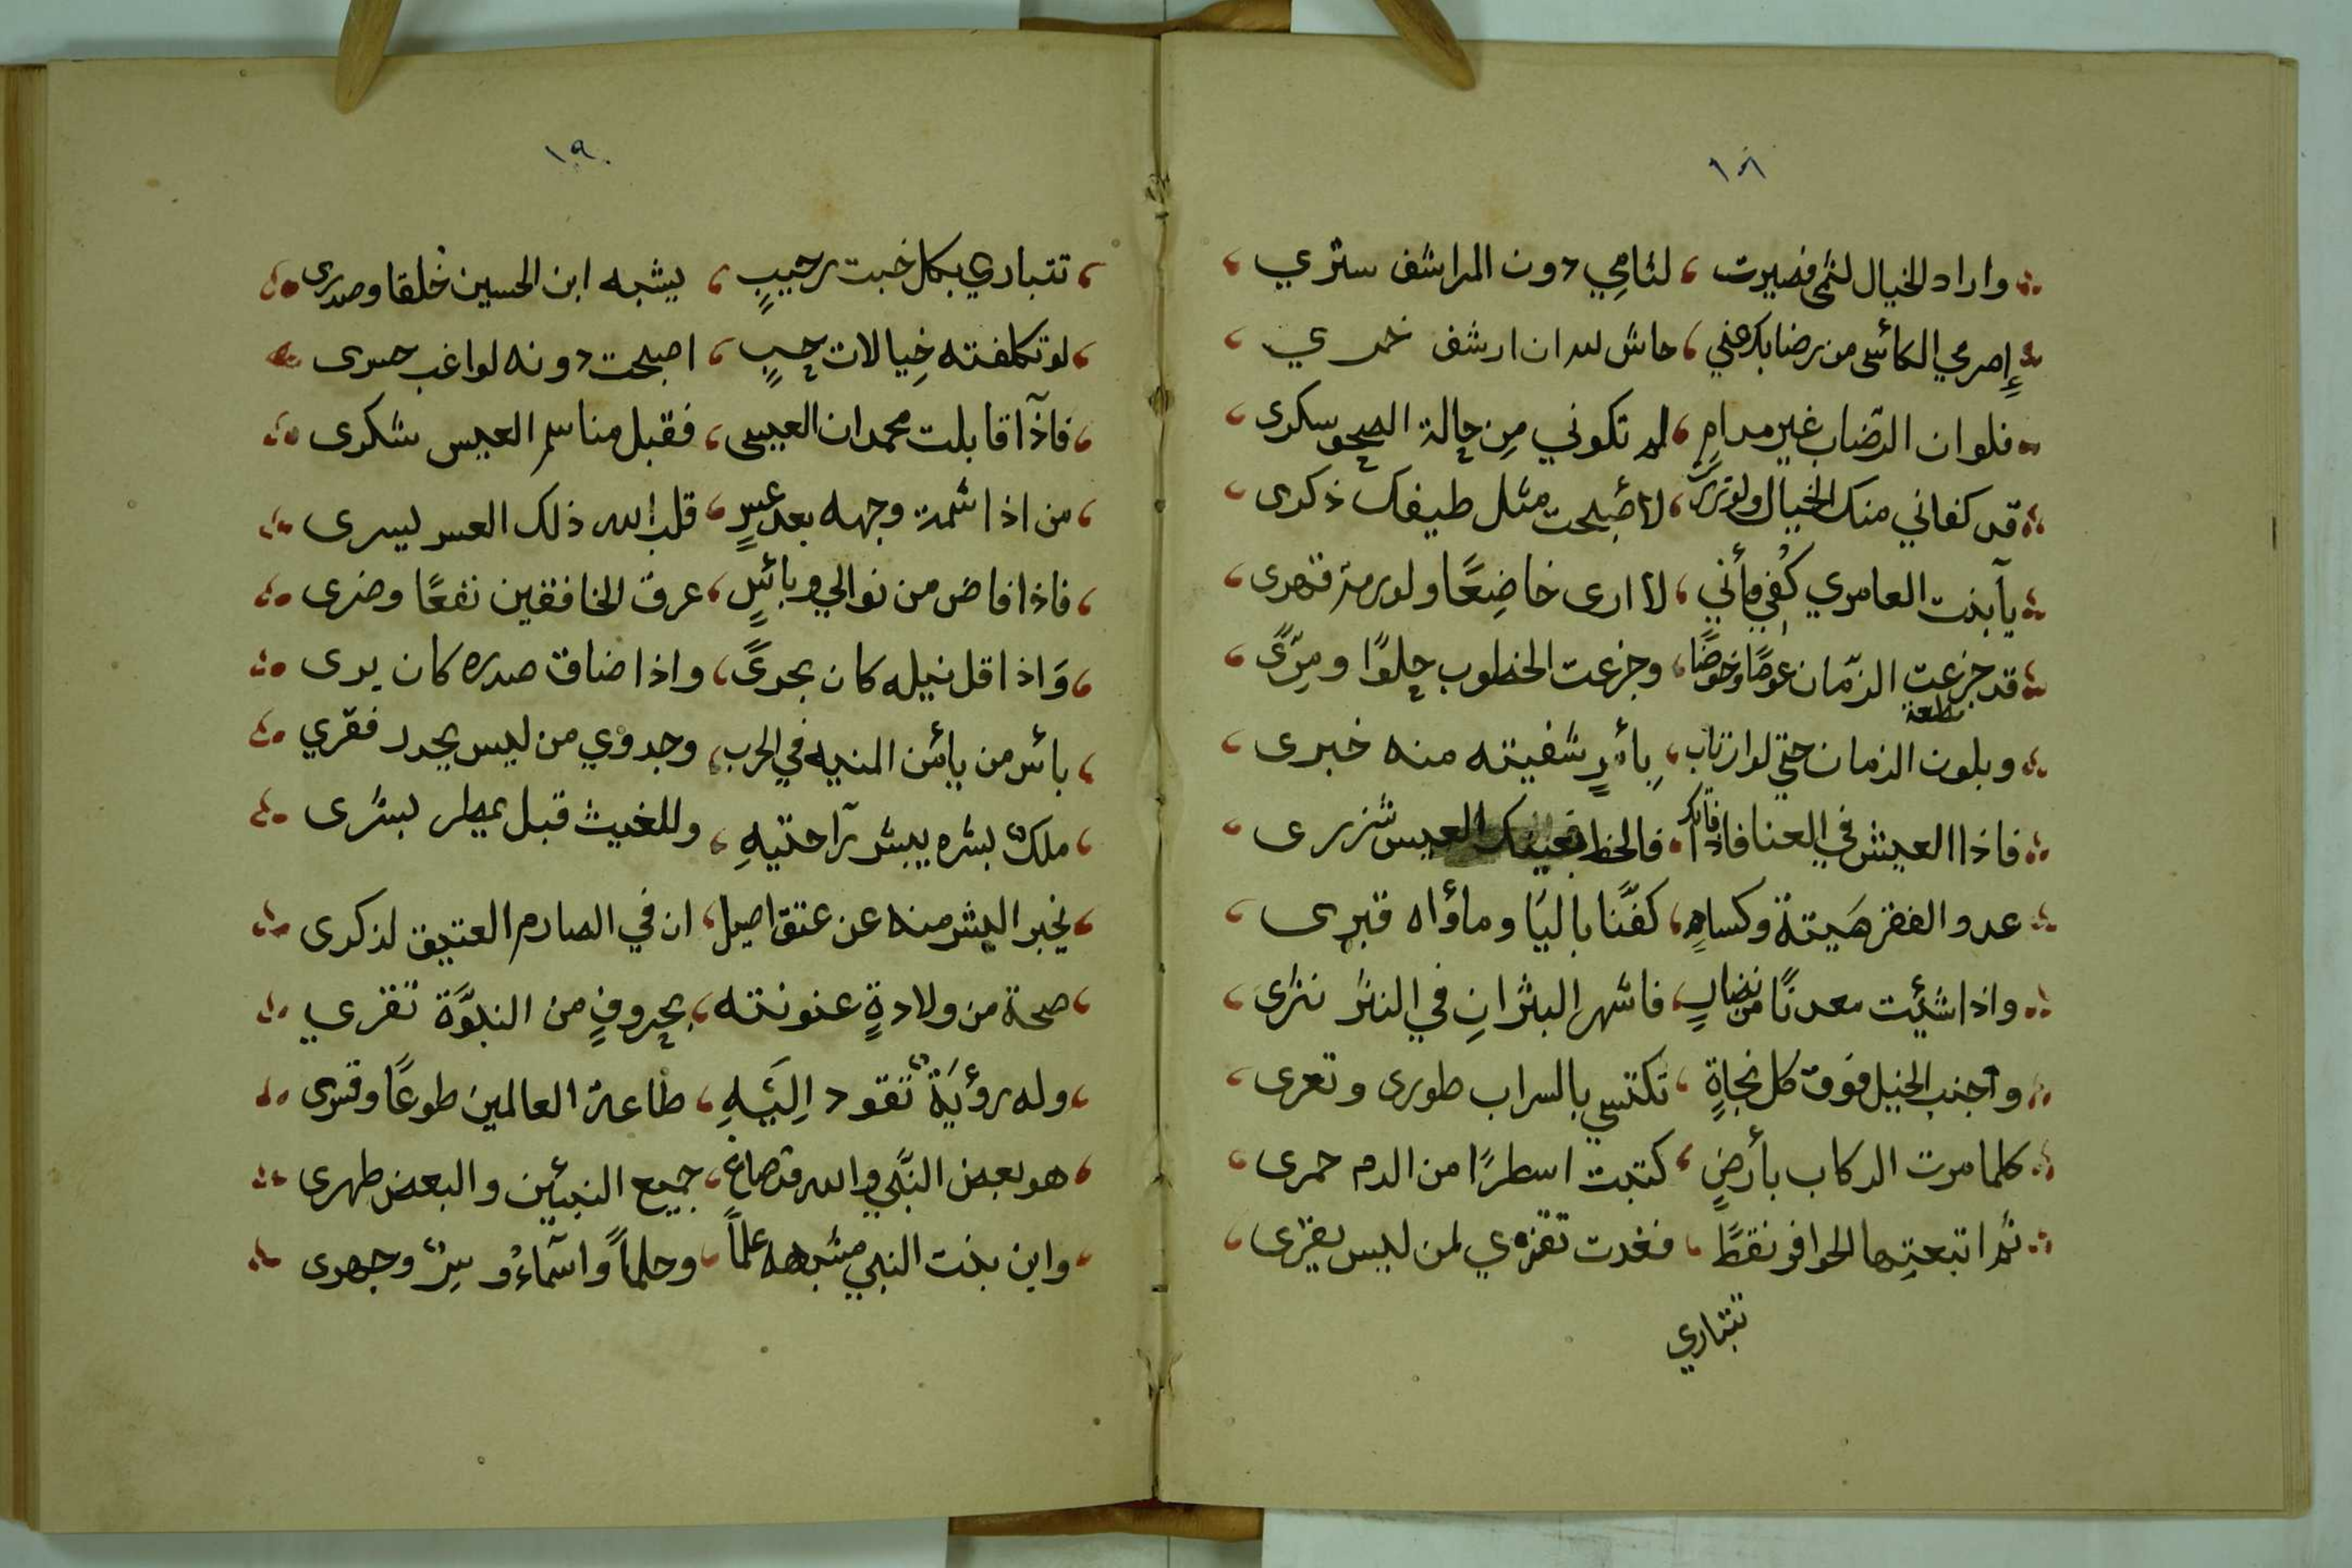 ١٨
واراد الخيال لثمي فصيرت ، لثامي دون المراشف ستري
إصرمي الكائس من رضابك عني ، حاش لله ان ارشف خمري
فلو ان الرّضاب غير مدامٍ ، لم تكوني مِن حالة الصحو سكرى
قد كفاني منك الخيال ولو زرت ، لأصبحت مثل طيفك ذكرى
يآ بنت العامري كُفي فأني ، لا ارى خاضِعًا ولو رمت قهرى
قد جزعت الزمان عوصًا وخوضًا ، وجزعت الخطوب حِلوًا ومِرّى
وبلوت الزمان حتى لو ارتاب ، بأمرٍ شفيته منه خبرى
فاذا العيش في العنا فاذا ، فالحظ العيس شزرى
عدو الفقر هَيتة وكساهِ ، كفّنا باليًا ومأواه قبرى
واذا شئيت معدنًا من نضارٍ ، فاشهر البترانِ في النثر نثرى
وآجنب الخيل فوق كل نجاةٍ ، تكتسي بالسراب طورى وتعرى
كلما مرت الركاب بأرضٍ ، كتبت اسطرًا من الدم حمرى
ثم اتبعتها الحوافر نقطًا ، فغدت تقرءي لمن ليس يقرى
تتباري
١٩
تتباري بكل خبت رحيبٍ ، يشبه ابن الحسين خُلقا وصدرى
لو تكلفته خِيالات حبٍ ، اصبحت دونه لواغب حسرى
فاذآ قابلت محمدان العيس ، فقبل مناسم العيس شكرى
من اذا شمت وجهه بعد عسرٍ ، قلب الله ذلك العسر ليسرى
فاذا فاض من نوالي وبائلٍ ، عرق الخافقين نفعًا وضرى
وَاذا قل نيله كان بحرىً ، واذا ضاق صدره كان برى
بائس من يائس المنيه في الحرب ، وجدوي من ليس يحدد فقري
ملكٌ بشره يبشر رآحتيهِ ، وللغيث قبل يمطر بشرى
يخبر البشر منه عن عتق اصيل ، ان في الصارم العتيق لذكرى
صحة من ولادةٍ عنونته ، بحروفٍ من النبوَّة تقري
وله رؤيَةٌ تقود اِليَهِ ، طاعة العالمين طوعًا وقسرى
هو بعض النَّبي والله قد صاغ ، جميع النبيئين والبعض طهرى
واين بنت النبي مشبهه علماً ، وحلماً وآسماءُ وسِرٌ وجهرى